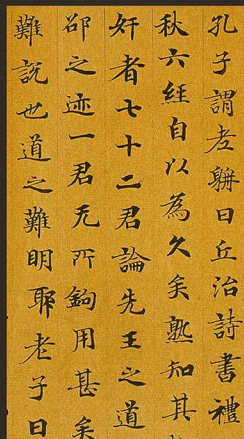 孔子謂老聃曰丘治詩書禮
秋六經自以為久矣熟知其
奸者七十二君論先王之道
邵之迹一君无所鉤用甚矣
難說也道之難明耶老子曰